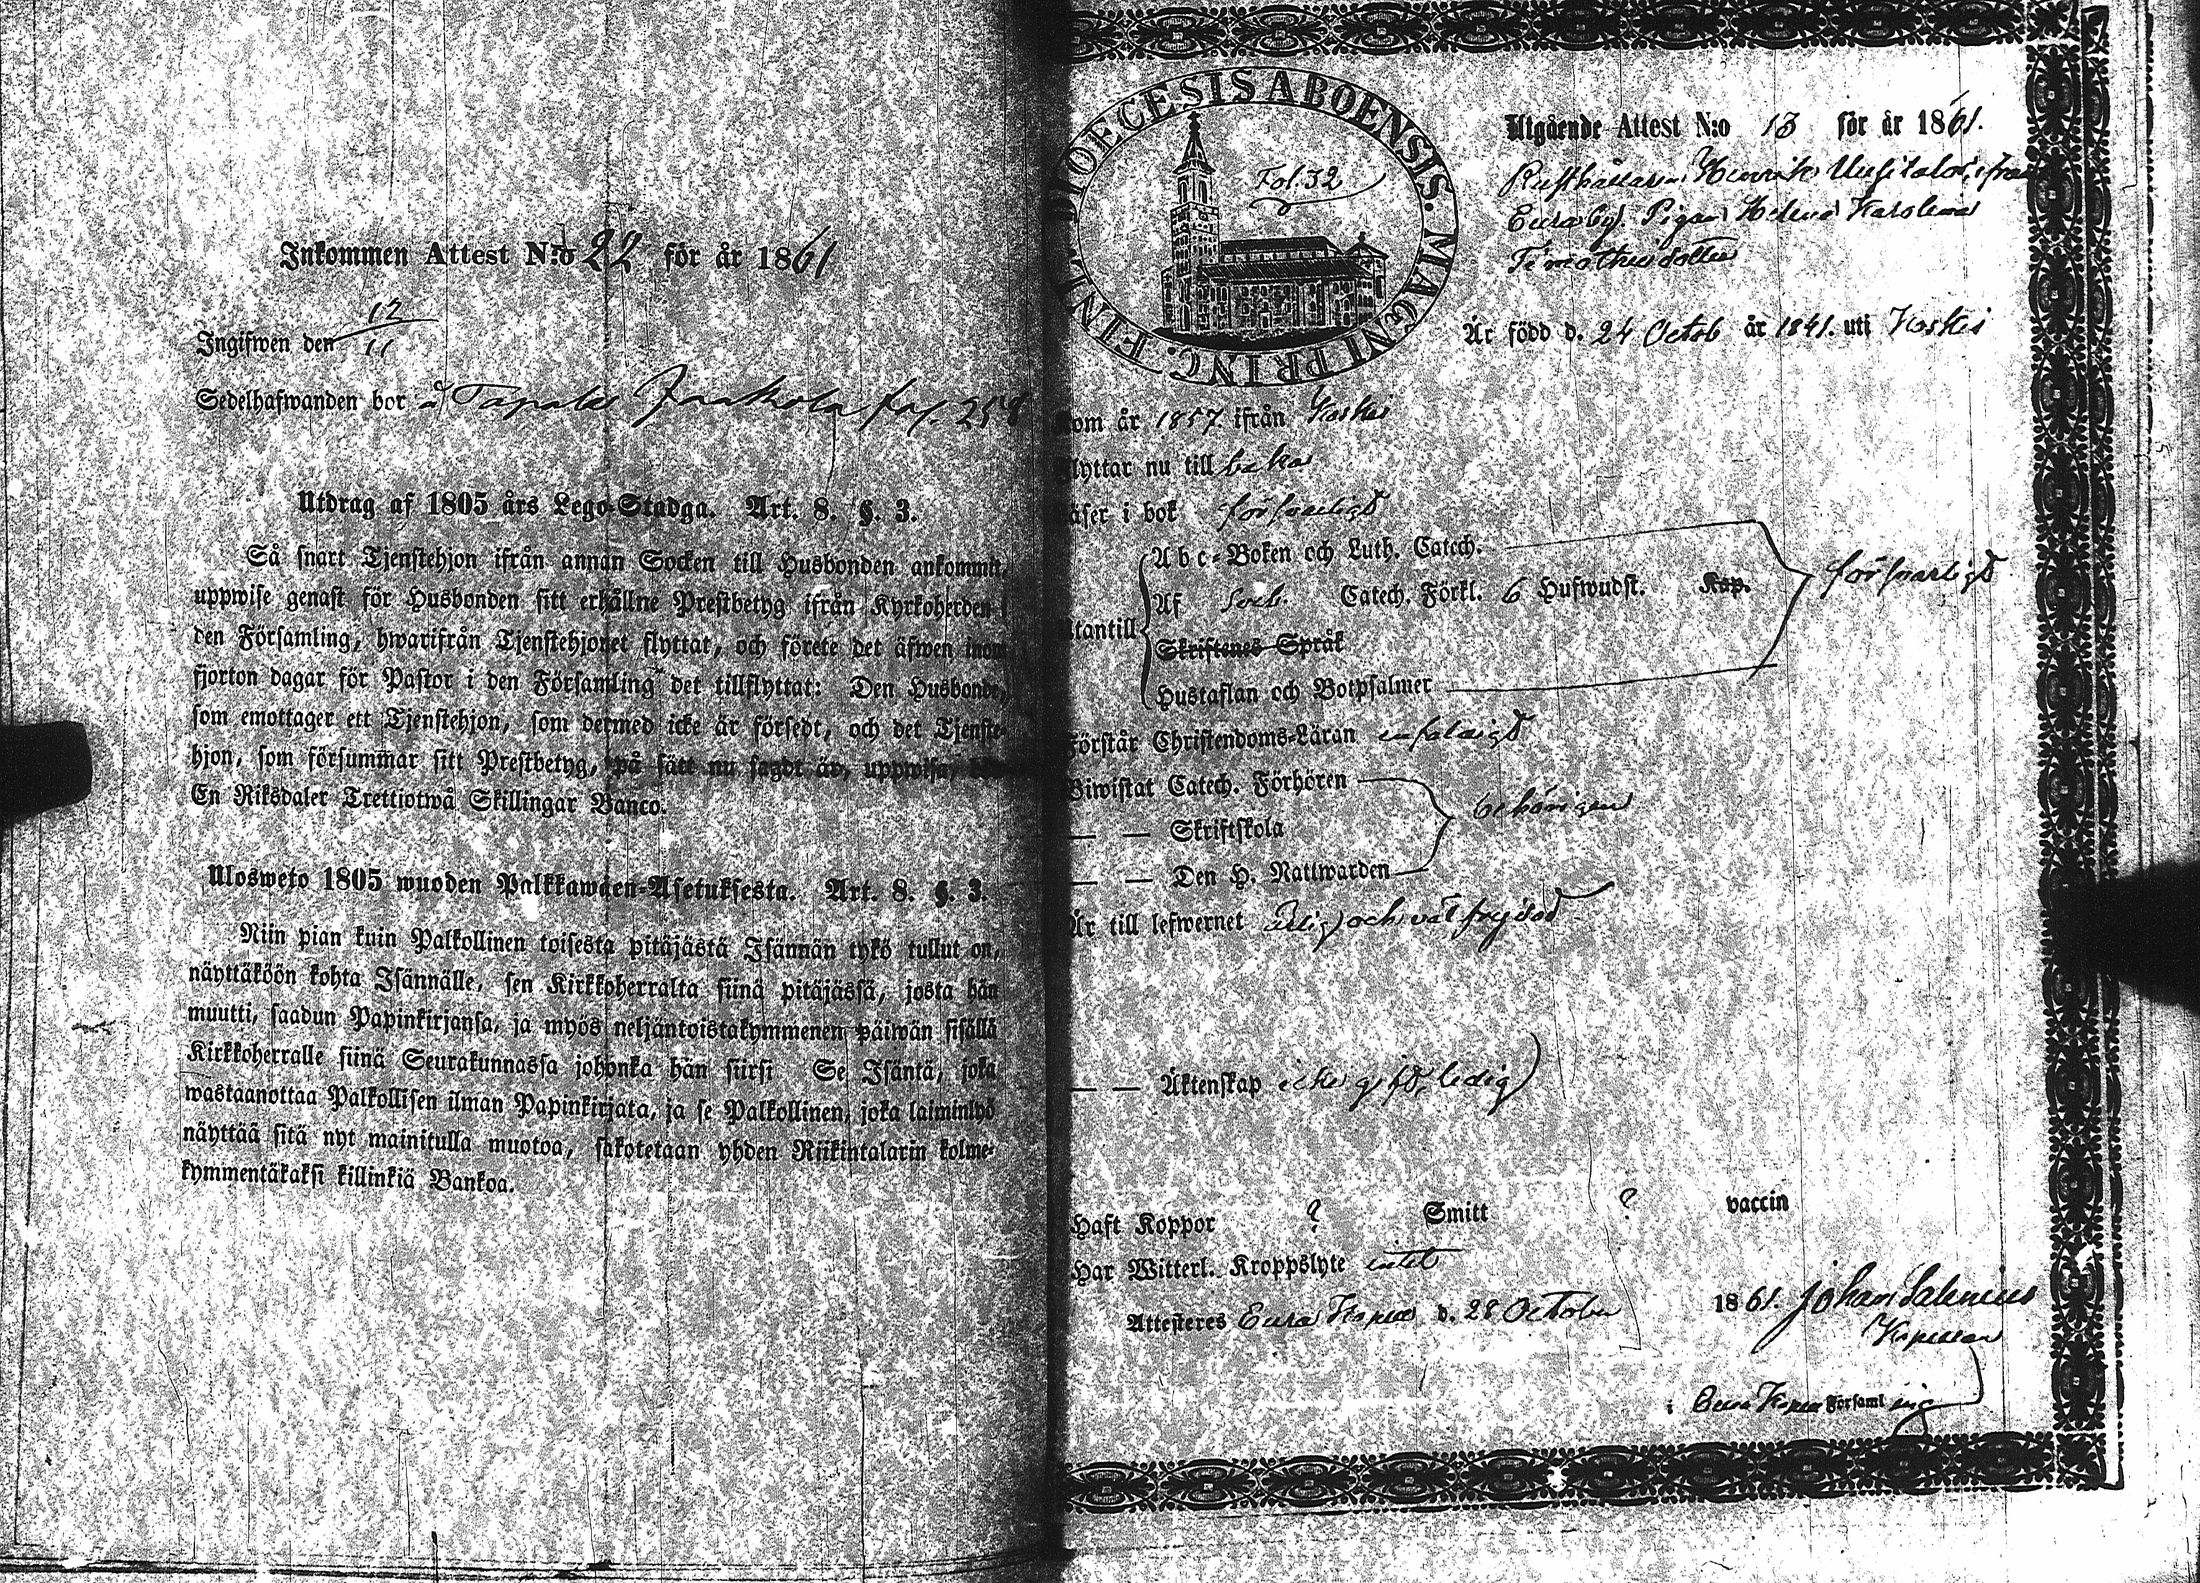 Inkommen Attest N:o 22 för år 1861
Ingifwen den 12/11
Sedelhafwanden bor å Tapala Jaakola pag. 258
Utdrag af 1805 års Lego-Stadga. Art. 8. §. 3.
Så snart Tjenstehjon ifrån annan Socken till Husbonden ankommit,
uppwise genast för Husbonden sitt erhållne Prestbetyg ifrån Kyrkoherden i
den Församling, hwarifrån Tjenstehjonet flyttat, och förete det äfwen inom
fjorton dagar för Pastor i den Församling det tillflyttat: Den Husbonde,
som emottager ett Tjenstehjon, som dermed icke är försedt, och det Tjenste-
hjon, som försummar sitt Prestbetyg, på sätt nu sagdt är, uppwisa,
En Riksdaler Trettiotwå Skillingar Banco.
Ulosweto 1805 wuoden Palkkawäen-Asetuksesta. Art. 8. §. 3.
Niin pian kuin Palkollinen toisesta pitäjästä Isännän tykö tullut on,
näyttäköön kohta Isännälle, sen Kirkkoherralta siinä pitäjässä, josta hän
muutti, saadun Papinkirjansa, ja myös neljäntoistakymmenen päiwän sisällä
Kirkkoherralle siinä Seurakunnassa johonka hän siirsi Se Isäntä, joka
wastaanottaa Palkollisen ilman Papinkirjata, ja se Palkollinen, joka laiminlyö
näyttää sitä nyt mainitulla muotoa, sakotetaan yhden Riikintalarin kolme-
kymmentäkaksi killinkiä Bankoa.
DIOECESIS ABOENSIS. MAGNI PRINC. FINL.
Fol. 32
Utgående Attest N:o 13 för år 1861.
Rusthållaren Henrik Uusitalos, ifrån
Eura by, Pigan Helena Karolina
Timotheidotter
Är född d. 24 Octob år 1841. uti Koskis
kom år 1857. ifrån Koskis
flyttar nu till baka
läser i bok försvarligt
Utantill
Abc-Boken och Luth. Catech.
Af Catech. Förkl. 6 Hufwudst. Kap.
försvarligt
Skriftenes Språk
Hustaflan och Botpsalmer
Förstår Christendoms-Läran enfaldigt
Biwistat Catech. Förhören
— — Skriftskola
behörigen
— — Den H. Nattwarden
Är till lefwernet ärlig och väl frejdad
— — Äktenskap icke gift, ledig
Haft Koppor ? Smitt ? vaccin
Har Witterl. Kroppslyte intet
Attesteres Eura Kapell d. 28 October 1861. Johan Salenius
Kapellan
i Eura Kapell Församling